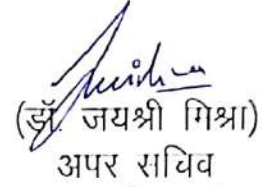 (डॉ. जयश्री मिश्रा)
अपर सचिव